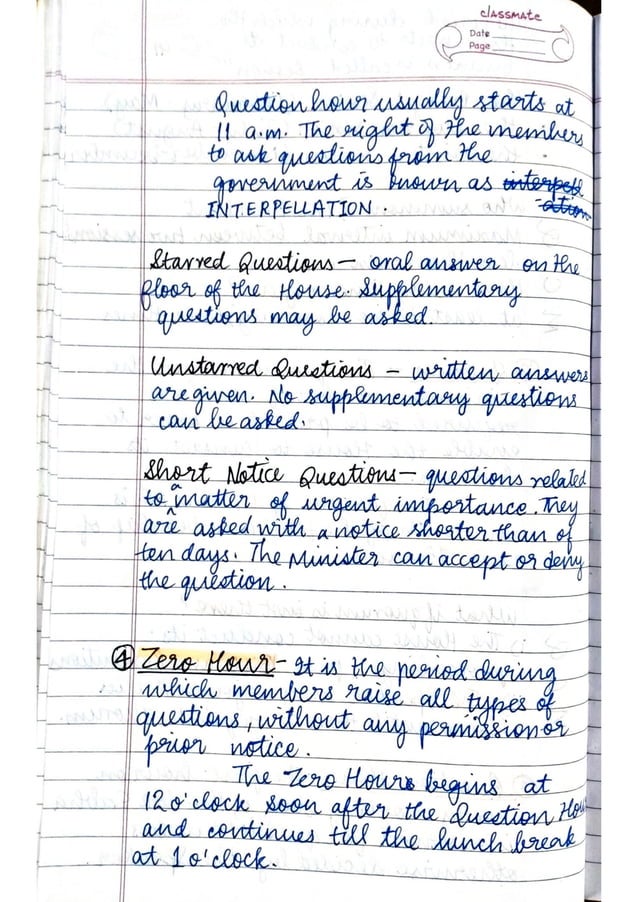 classmate
Date
Page
Question hour usually starts at
11 a.m. The right of the members
to ask questions from the
government is known as interpell
ation
INTERPELLATION.
Starred Questions – oral answer on the
floor of the House. Supplementary
questions may be asked.
Unstarred Questions – written answers
are given. No supplementary questions
can be asked.
Short Notice Questions – questions related
to a matter of urgent importance. They
are asked with a notice shorter than of
ten days. The Minister can accept or deny
the question.
④ Zero Hour - It is the period during
which members raise all types of
questions, without any permission or
prior notice.
The Zero Hours begins at
12 o'clock soon after the Question Hou
and continues till the lunch break
at 1 o'clock.